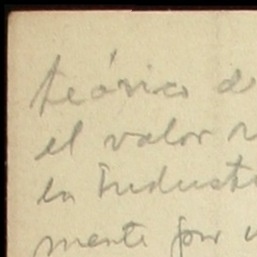 teórico d
el valor
la industr
mente por